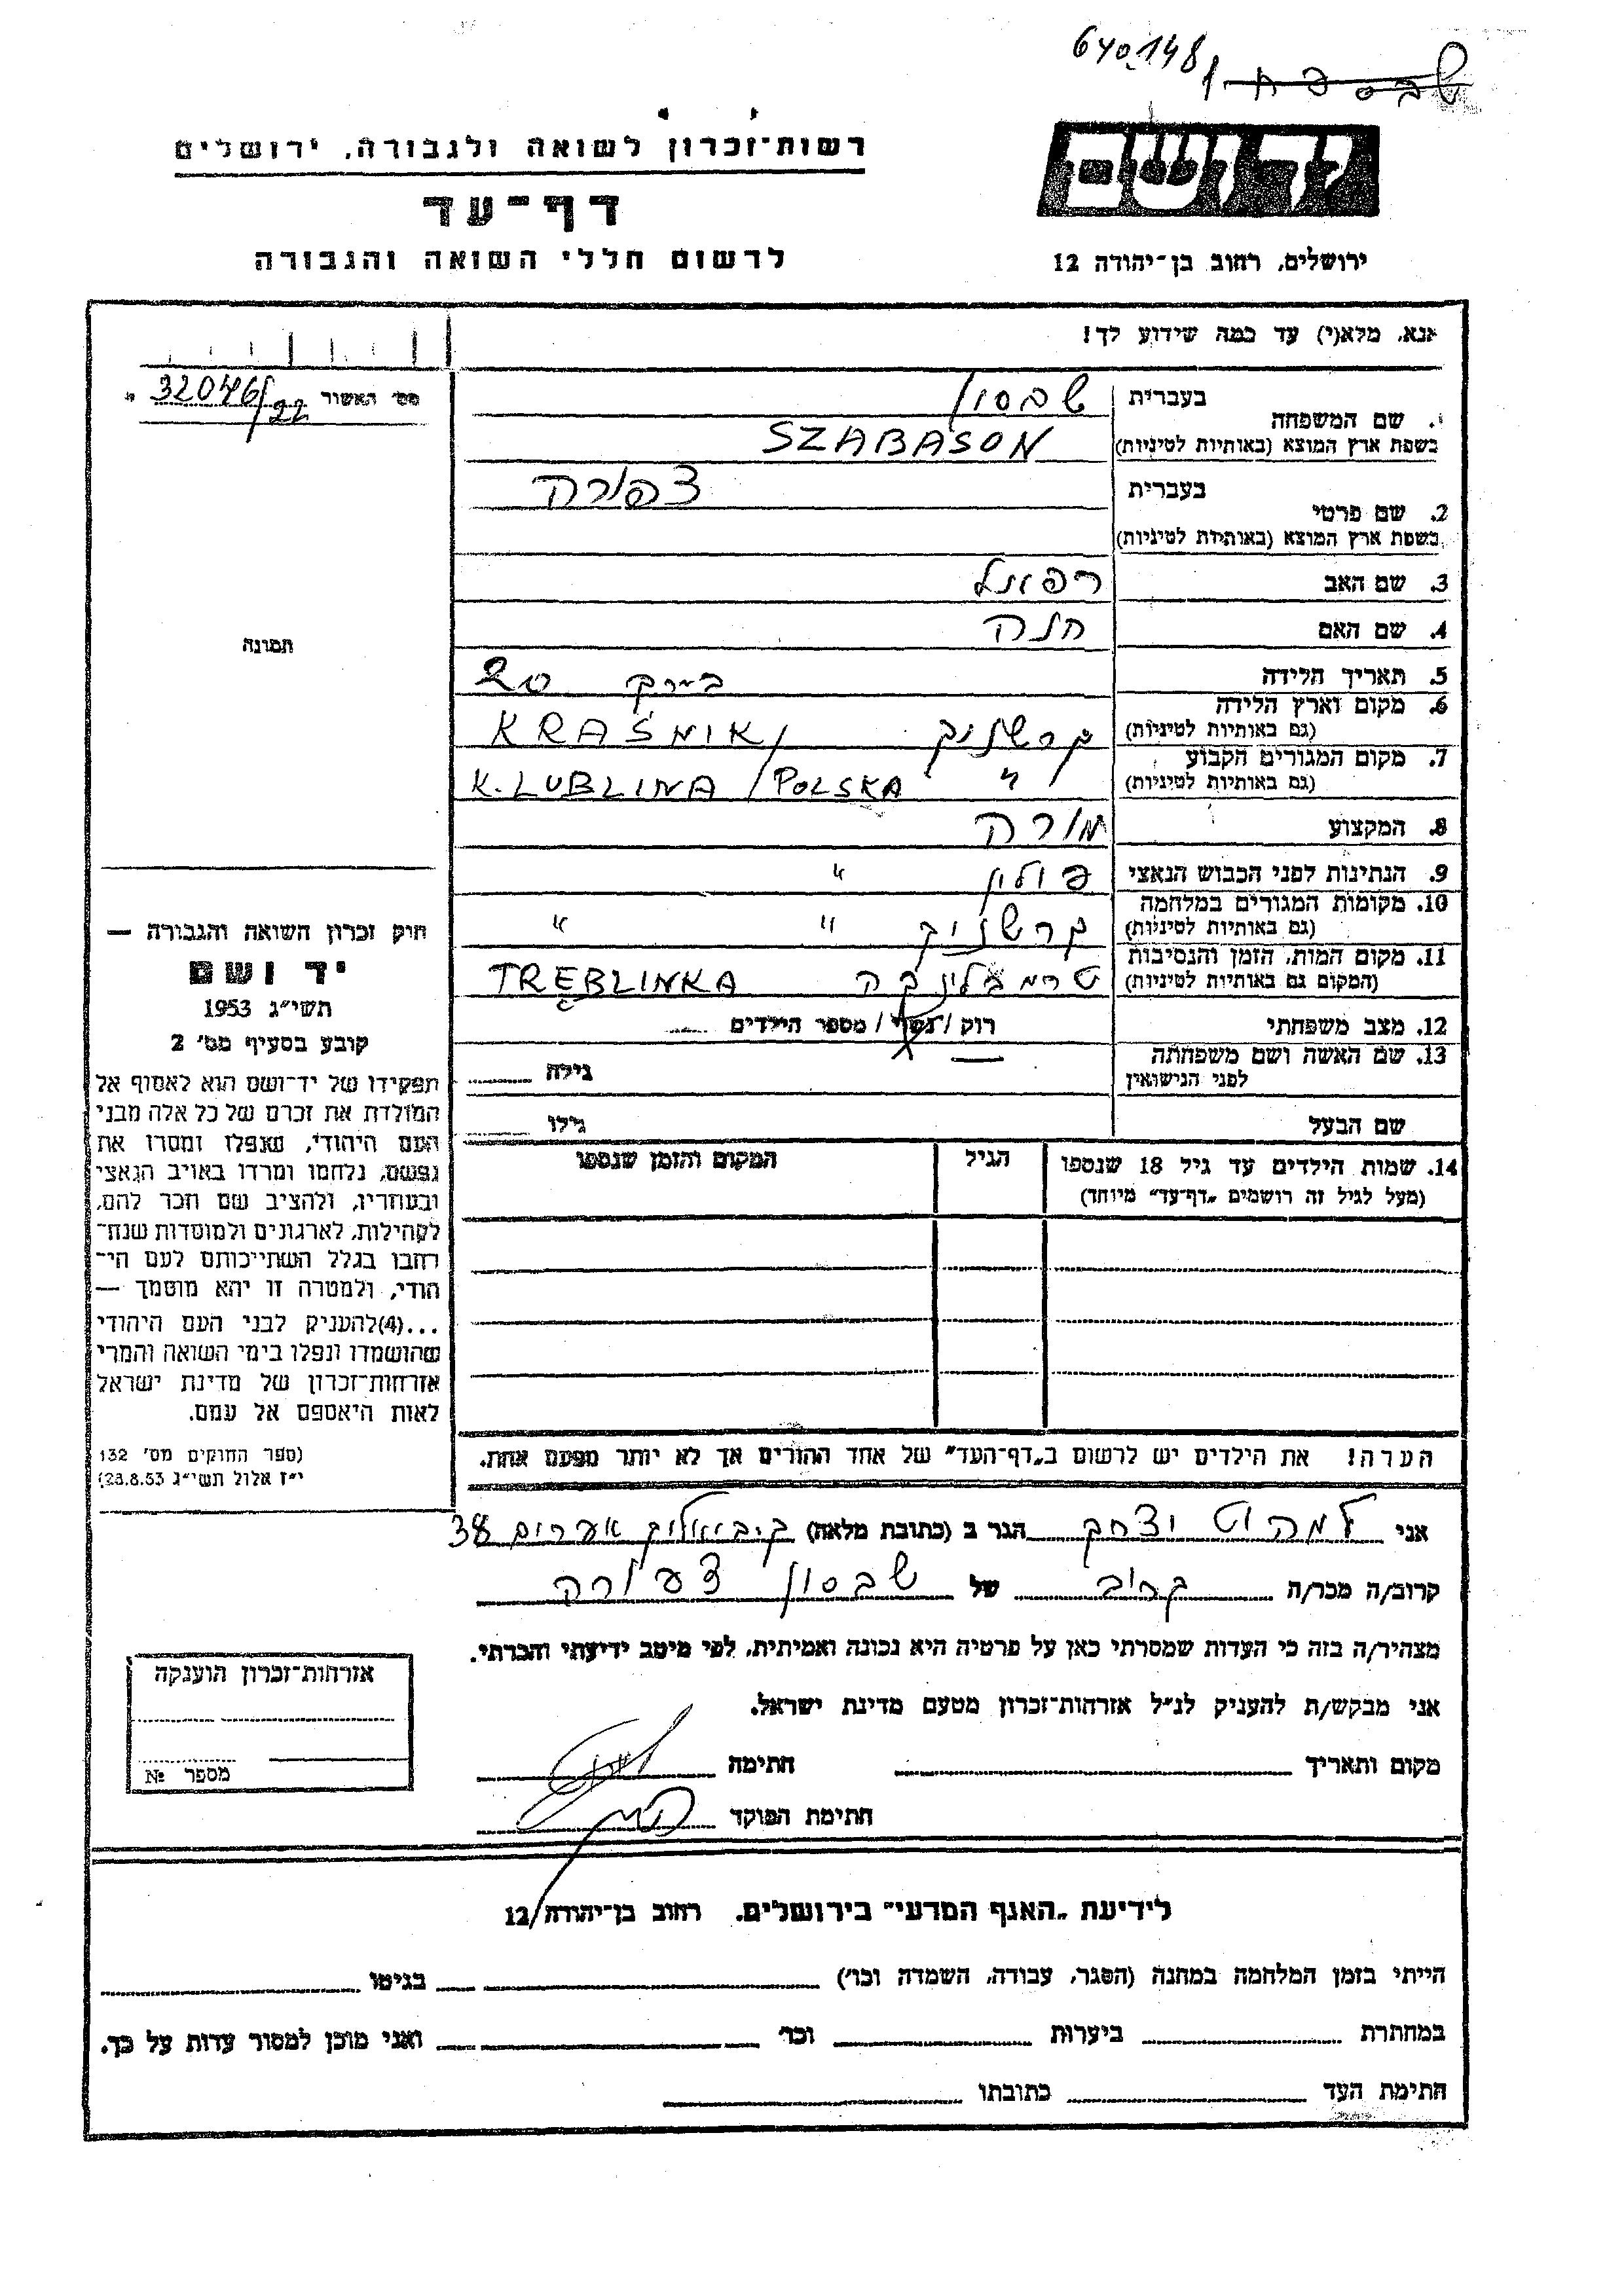 640148
שבסון
רשות־זכרון לשואה ולגבורה, ירושלים
דף־עד
לרשום חללי השואה והגבורה
יד ושם
ירושלים, רחוב בן־יהודה 12
אנא, מלא(י) עד כמה שידוע לך!
מס׳ האשור 32046/22
1. שם המשפחה
בעברית שבסון
בשפת ארץ המוצא (באותיות לטיניות) SZABASON
2. שם פרטי
בעברית צפורה
בשפת ארץ המוצא (באותיות לטיניות)
3. שם האב רפאל
4. שם האם חנה
5. תאריך הלידה 20
6. מקום וארץ הלידה
(גם באותיות לטיניות) קרשניק KRAŚNIK/
7. מקום המגורים הקבוע
(גם באותיות לטיניות) " K. LUBLINA / POLSKA
8. המקצוע מורה
9. הנתינות לפני הכבוש הנאצי פולין "
10. מקומות המגורים במלחמה
(גם באותיות לטיניות) קרשניק " "
11. מקום המות, הזמן והנסיבות
(המקום גם באותיות לטיניות) טרמבלינקה TREBLINKA
12. מצב משפחתי רוק / נשוי / מספר הילדים
13. שם האשה ושם משפחתה
לפני הנישואין גילה
שם הבעל גילו
14. שמות הילדים עד גיל 18 שנספו
(מעל לגיל זה רושמים „דף־עד״ מיוחד)
הגיל
המקום והזמן שנספו
הערה! את הילדים יש לרשום ב„דף־העד״ של אחד ההורים אך לא יותר מפעם אחת.
תמונה
חוק זכרון השואה והגבורה —
יד ושם
תשי״ג 1953
קובע בסעיף מס׳ 2
תפקידו של יד־ושם הוא לאסוף אל
המולדת את זכרם של כל אלה מבני
העם היהודי, שנפלו ומסרו את
נפשם, נלחמו ומרדו באויב הנאצי
ובעוזריו, ולהציב שם וזכר להם,
לקהילות, לארגונים ולמוסדות שנח־
רבו בגלל השתייכותם לעם הי־
הודי, ולמטרה זו יהא מוסמך —
...(4) להעניק לבני העם היהודי
שהושמדו ונפלו בימי השואה והמרי
אזרחות־זכרון של מדינת ישראל
לאות היאספם אל עמם.
(ספר החוקים מס׳ 132
י״ז אלול תשי״ג 28.8.53)
אני יצחק הגר ב (כתובת מלאה) ק. ביאליק אפרים 38
קרוב/ה מכר/ה קרוב של שבסון צפורה
מצהיר/ה בזה כי העדות שמסרתי כאן על פרטיה היא נכונה ואמיתית, לפי מיטב ידיעתי והכרתי.
אני מבקש/ת להעניק לנ״ל אזרחות־זכרון מטעם מדינת ישראל.
מקום ותאריך חתימה
חתימת הפוקד
אזרחות־זכרון הוענקה
מספר №
לידיעת „האגף המדעי״ בירושלים, רחוב בן־יהודה 12
הייתי בזמן המלחמה במחנה (הסגר, עבודה, השמדה וכו׳) בגיטו
במחתרת ביערות וכו׳ ואני מוכן למסור עדות על כך.
חתימת העד כתובתו